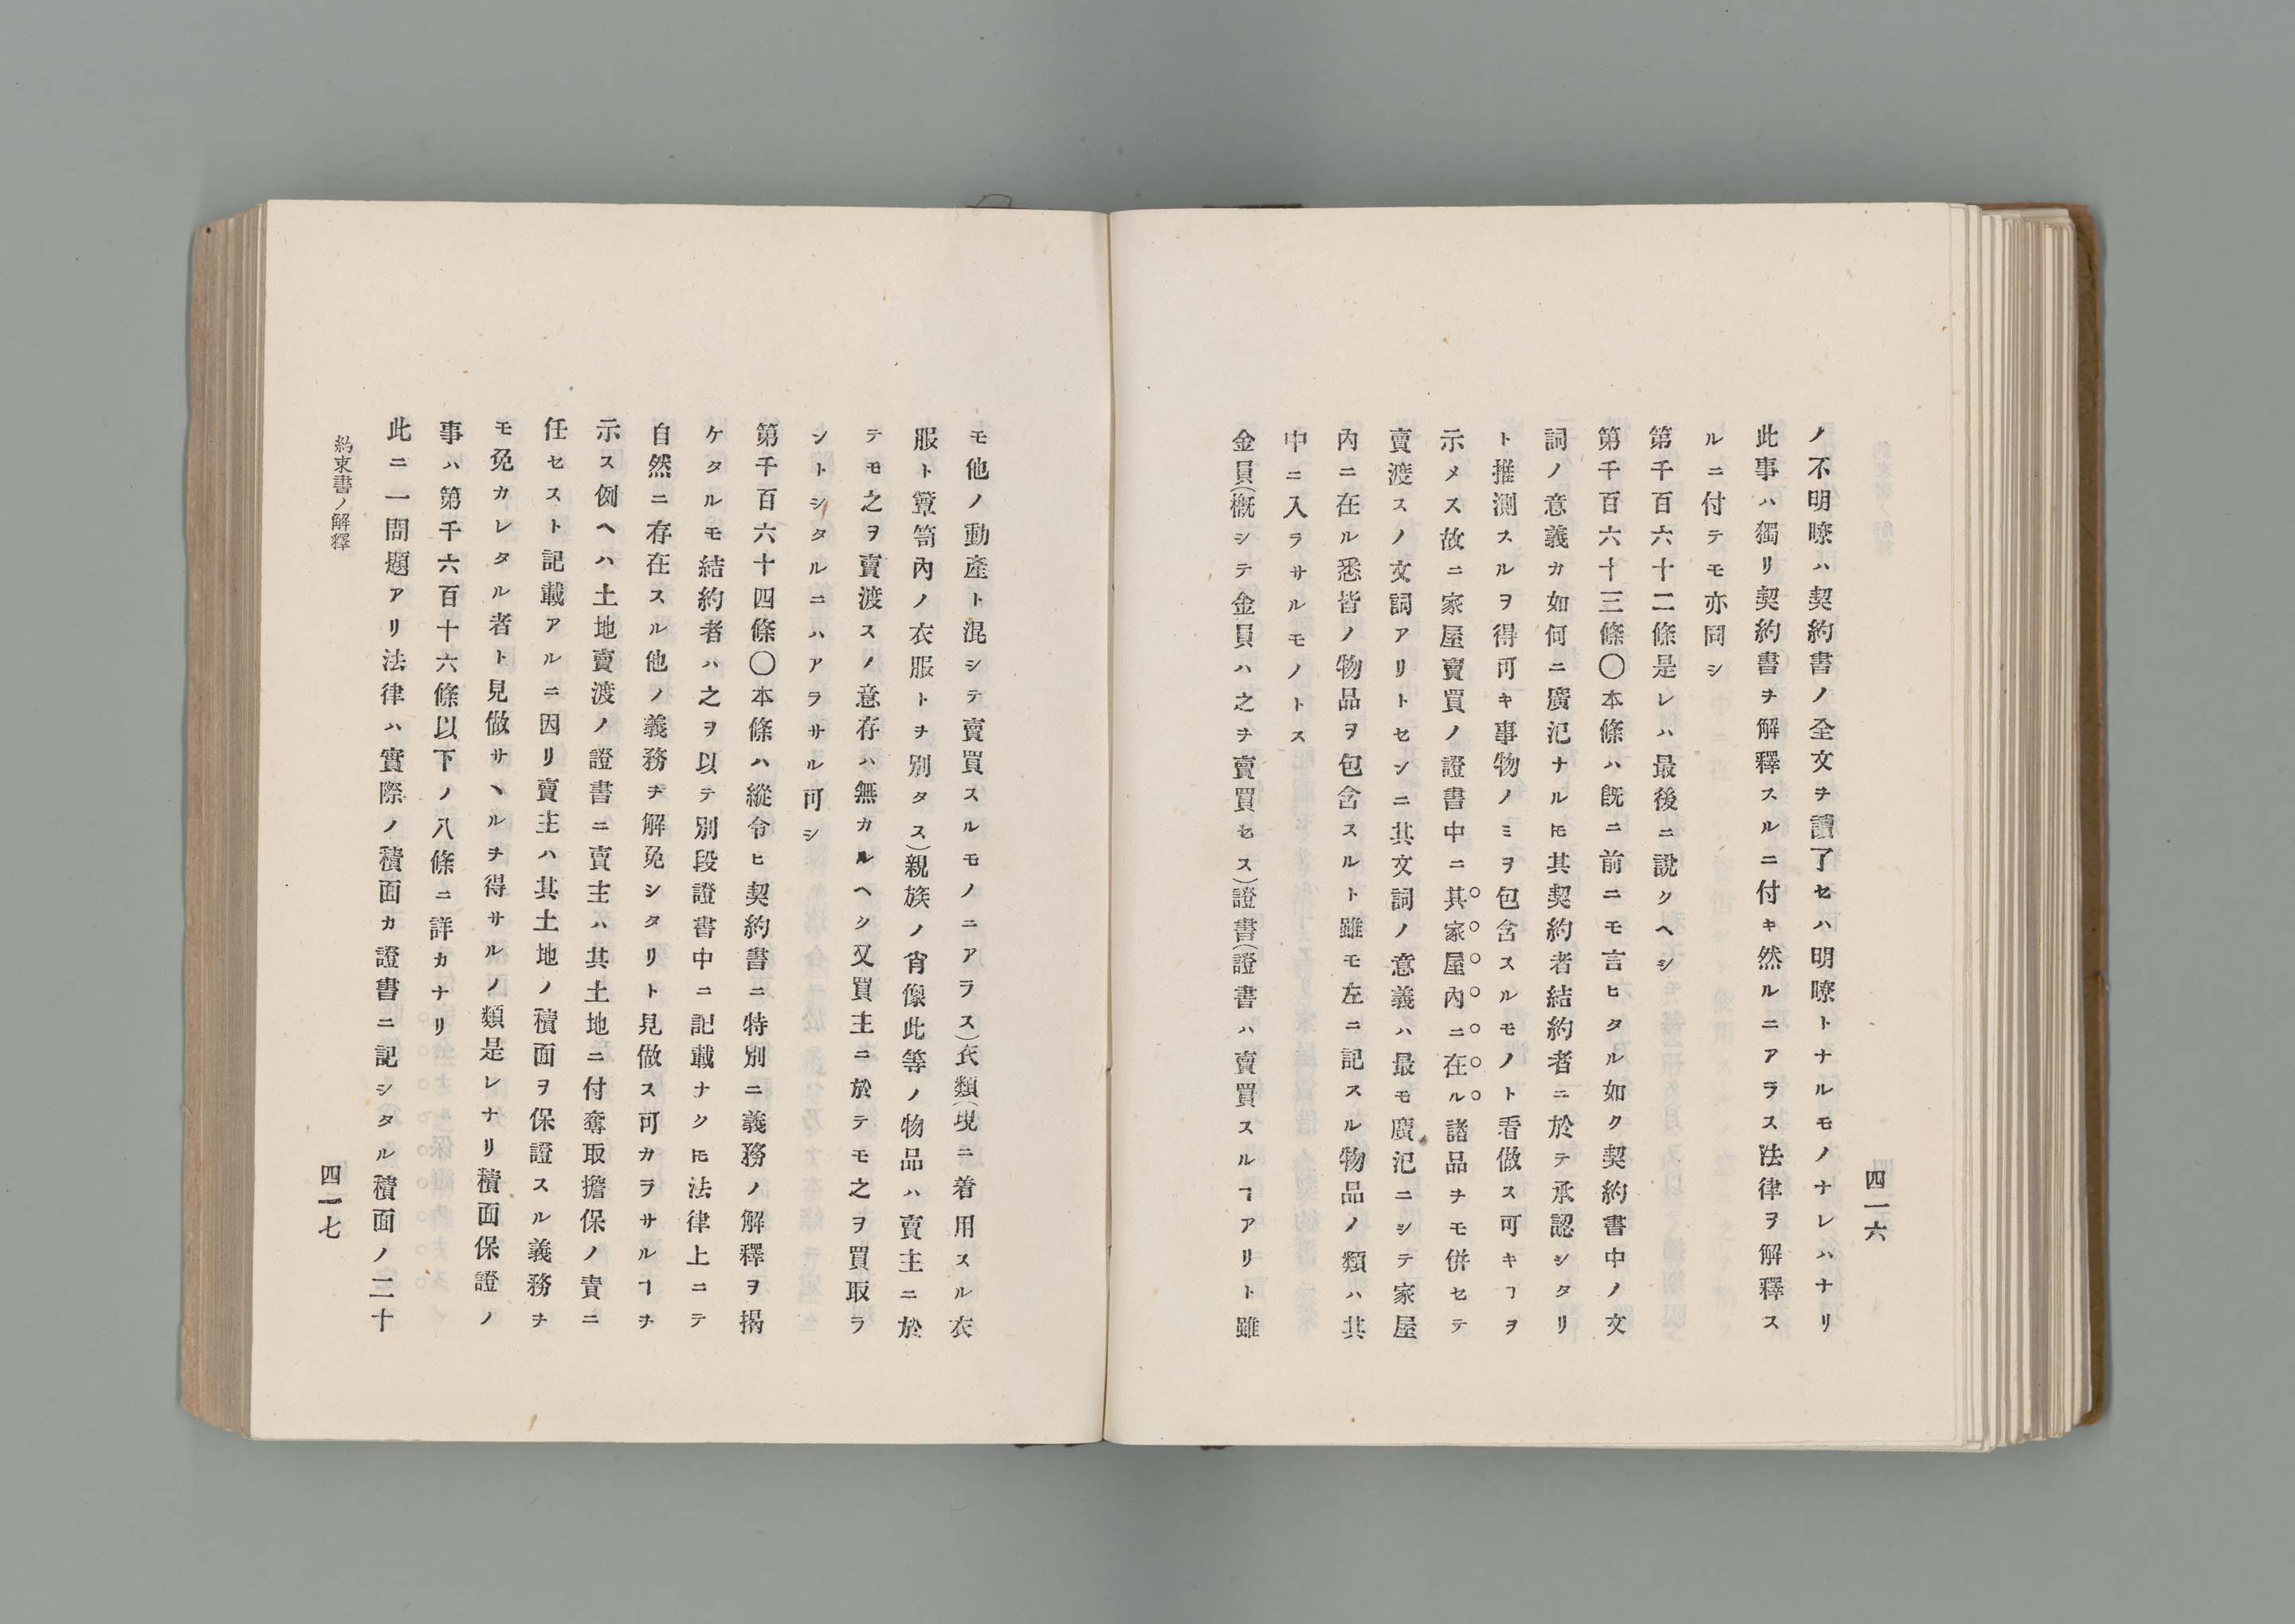 四一六
ノ不明瞭ハ契約書ノ全文ヲ讀了セハ明瞭トナルモノナレハナリ
此事ハ獨リ契約書ヲ解釋スルニ付キ然ルニアラス法律ヲ解釋ス
ルニ付テモ亦同シ
第千百六十二條是レハ最後ニ説クヘシ
第千百六十三條〇本條ハ既ニ前ニモ言ヒタル如ク契約書中ノ文
詞ノ意義カ如何ニ廣汜ナルヒモ其契約者結約者ニ於テ承認シタリ
ト推測スルヲ得可キ事物ノミヲ包含スルモノト看做ス可キヿヲ
示メス故ニ家屋賣買ノ證書中ニ其家屋內ニ在ル諸品ヲモ併セテ
賣渡スノ文詞アリトセンニ其文詞ノ意義ハ最モ廣汜ニシテ家屋
內ニ在ル悉皆ノ物品ヲ包含スルト雖モ左ニ記スル物品ノ類ハ其
中ニ入ラサルモノトス
金員(概シテ金員ハ之ヲ賣買セス)證書(證書ハ賣買スルヿアリト雖
モ他ノ動產ト混シテ賣買スルモノニアラス)衣類(現ニ着用スル衣
服ト簞笥內ノ衣服トヲ別タス)親族ノ肖像此等ノ物品ハ賣主ニ於
テモ之ヲ賣渡スノ意存ハ無カルヘク又買主ニ於テモ之ヲ買取ラ
ントシタルニハアラサル可シ
第千百六十四條〇本條ハ縱令ヒ契約書ニ特別ニ義務ノ解釋ヲ揭
ケタルモ結約者ハ之ヲ以テ別段證書中ニ記載ナクヒモ法律上ニテ
自然ニ存在スル他ノ義務ヲ解免シタリト見做ス可カラサルヿヲ
示ス例ヘハ土地賣渡ノ證書ニ賣主ハ其土地ニ付奪取擔保ノ責ニ
任セスト記載アルニ因リ賣主ハ其土地ノ積面ヲ保證スル義務ヲ
モ免カレタル者ト見做サヽルヲ得サルノ類是レナリ積面保證ノ
事ハ第千六百十六條以下ノ八條ニ詳カナリ
此ニ一問題アリ法律ハ實際ノ積面カ證書ニ記シタル積面ノ二十
約束書ノ解釋
四一七